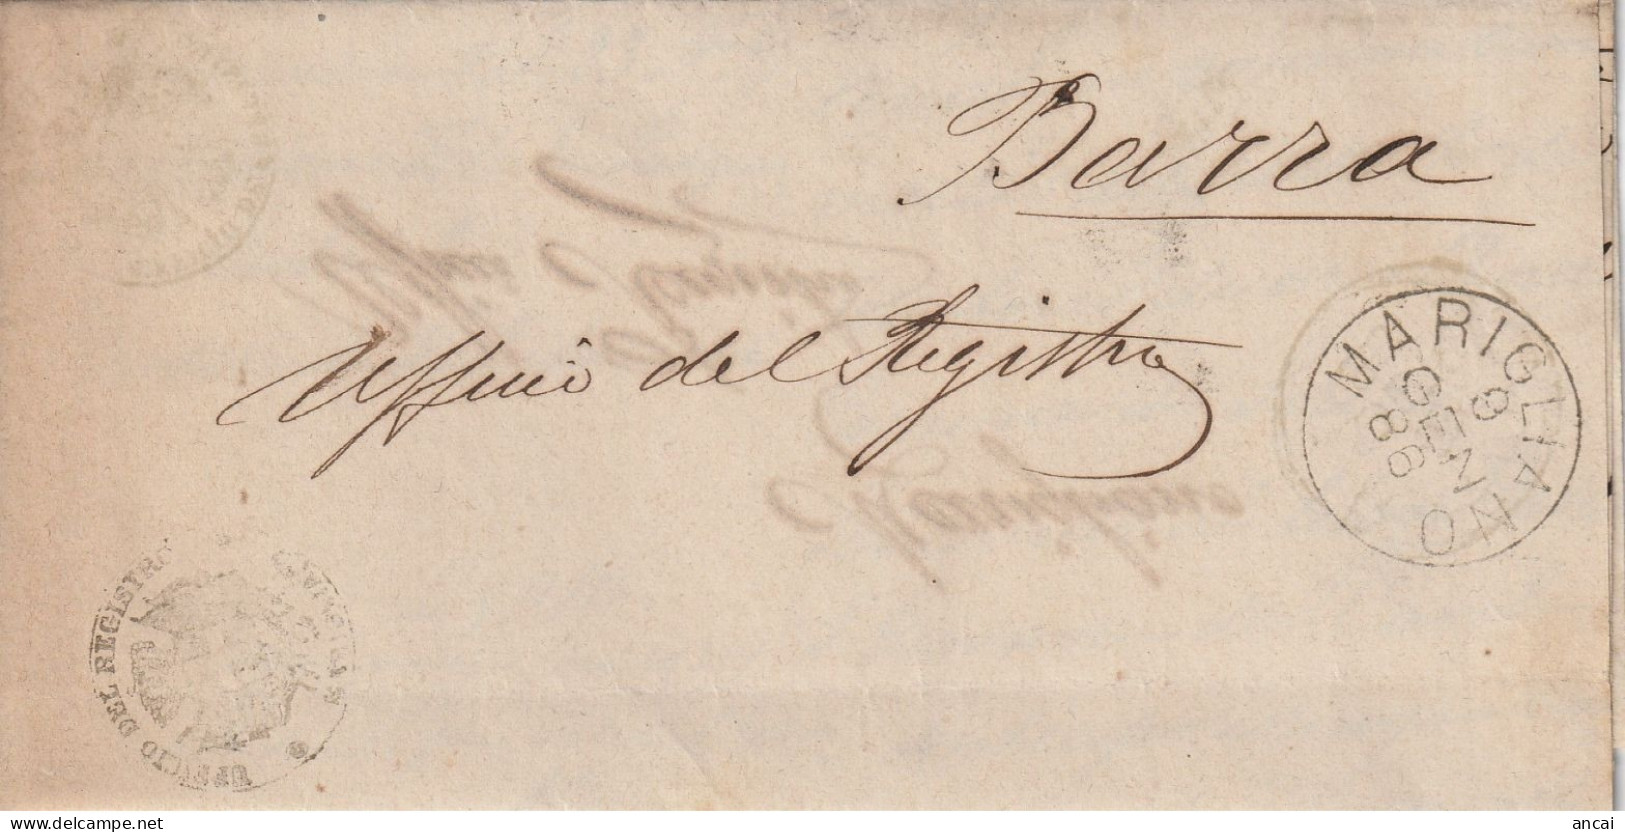 Barra
Ufficio del Registro
MARIGLIANO
9
GEN
89
UFFICIO DEL REGISTRO
www.delcampe.net
ancai